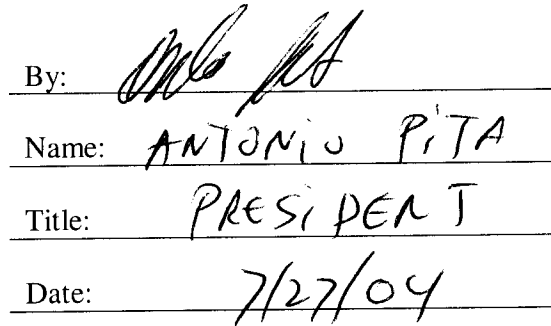 By:
Name: ANTONIO PITA
Title: PRESIDENT
Date: 7/27/04